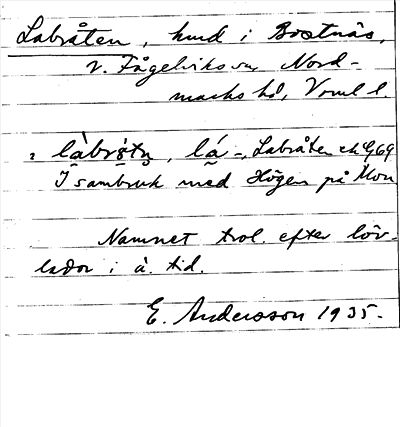 Labråten, hmd i Bostnäs,
v. Fågelviks sn, Nord-
marks hd, Vrml l.
: làbrǫ̀tn̥, lá -, Labråten ek G69
I sambruk med Högen på Mon
Namnet trol. efter löv-
lador i ä. tid.
E. Andersson 1935.